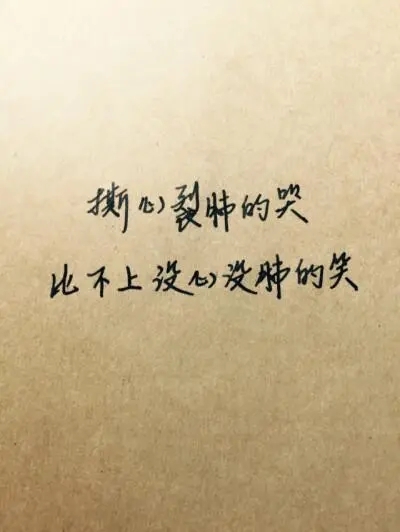 撕心裂肺的哭
比不上没心没肺的笑